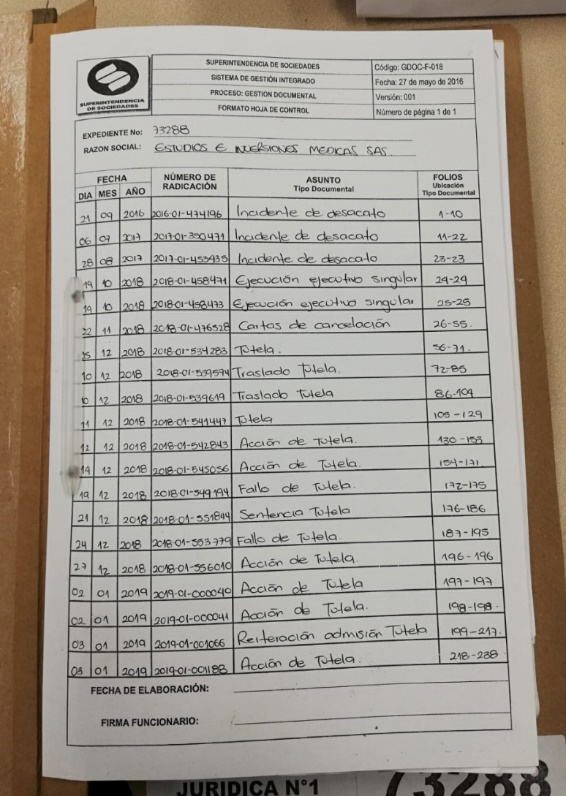 SUPERINTENDENCIA
DE SOCIEDADES
SUPERINTENDENCIA DE SOCIEDADES
SISTEMA DE GESTIÓN INTEGRADO
PROCESO: GESTIÓN DOCUMENTAL
FORMATO HOJA DE CONTROL
Código: GDOC-F-018
Fecha: 27 de mayo de 2016
Versión: 001
Número de página 1 de 1
EXPEDIENTE No: 73288
RAZON SOCIAL: ESTUDIOS E INVERSIONES MEDICAS SAS.
FECHA
DIA MES AÑO
NÚMERO DE
RADICACIÓN
ASUNTO
Tipo Documental
FOLIOS
Ubicación
Tipo Documental
21 09 2016 2016-01-474196 Incidente de desacato 1-10
06 07 2017 2017-01-350471 Incidente de desacato 11-22
28 08 2017 2017-01-455935 Incidente de desacato 23-23
19 10 2018 2018-01-458471 Ejecución ejecutivo singular 24-24
19 10 2018 2018-01-458473 Ejecución ejecutivo singular 25-25
22 11 2018 2018-01-476528 Cartas de cancelación 26-55.
12 2018 2018-01-534283 Tutela. 56-71.
10 12 2018 2018-01-539574 Traslado Tutela. 72-85
10 12 2018 2018-01-539619 Traslado Tutela 86-104
11 12 2018 2018-01-541447 Tutela 105-129
12 12 2018 2018-01-542843 Acción de Tutela. 130-153
14 12 2018 2018-01-545056 Acción de Tutela. 154-171
19 12 2018 2018-01-549194 Fallo de Tutela. 172-175
21 12 2018 2018-01-551844 Sentencia Tutela 176-186
24 12 2018 2018-01-553779 Fallo de Tutela. 187-195
27 12 2018 2018-01-556010 Acción de Tutela. 196-196
02 01 2019 2019-01-000040 Acción de Tutela 197-197
02 01 2019 2019-01-000041 Acción de Tutela. 198-198.
03 01 2019 2019-01-001066 Reiteración admisión Tutela 199-217.
03 01 2019 2019-01-001188 Acción de Tutela. 218-238
FECHA DE ELABORACIÓN:
FIRMA FUNCIONARIO:
JURIDICA N°1
73288